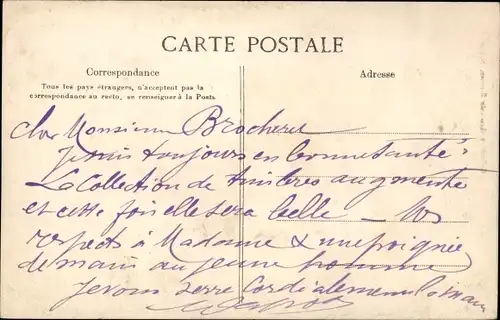 CARTE POSTALE
Correspondance
Adresse
Tous les pays étrangers, n'acceptent pas la
correspondance au recto, se renseigner à la Poste
cher Monsieur Brocheret
Je suis toujours en bonne santé.
La Collection de timbres augmente
et cette fois elle sera belle — Mes
respects à Madame & une poignée
de main au jeune homme
Je vous serre Cordialement la main